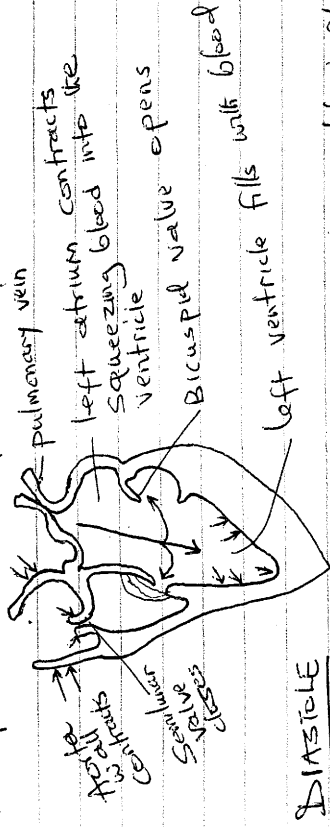 pulmonary vein
left atrium contracts
squeezing blood into the
ventricle
Bicuspid valve opens
left ventricle fills with blood
Aorta
wall
contracts
Semilunar
valve
closes
DIASTOLE